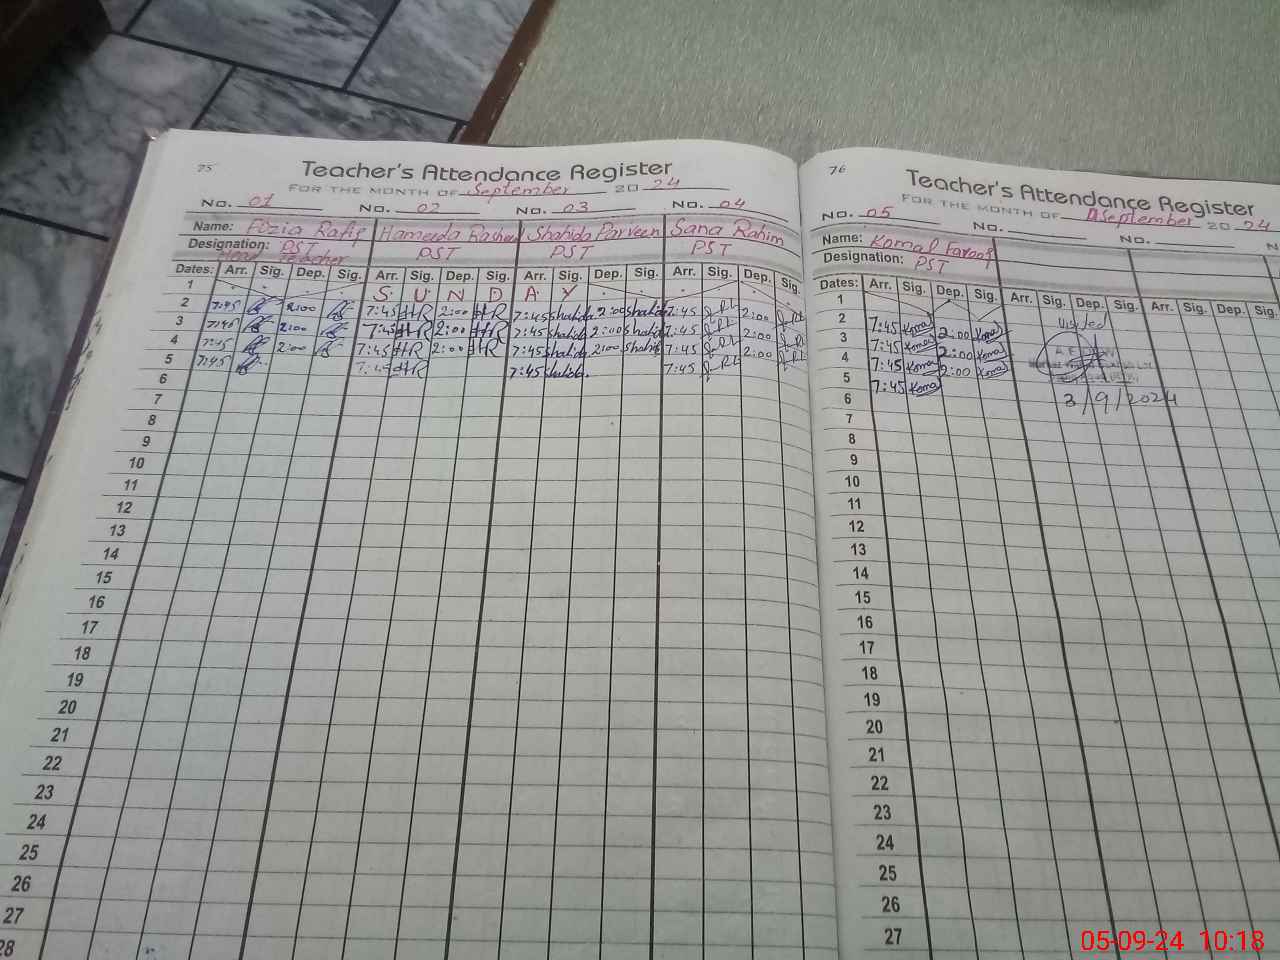 75
Teacher's Attendance Register
FOR THE MONTH OF September 2024
No. 01 No. 02 No. 03 No. 04
Name: Fozia Rafiq Hameeda Rasheed Shahida Parveen Sana Rahim
Designation: PST PST PST PST
Head Teacher
Dates: Arr. Sig. Dep. Sig. Arr. Sig. Dep. Sig. Arr. Sig. Dep. Sig. Arr. Sig. Dep. Sig.
1 S U N D A Y
2 7:45 2:00 7:45 HR 2:00 HR 7:45 Shahida 2:00 Shahida 7:45 2:00
3 7:45 2:00 7:45 HR 2:00 HR 7:45 Shahida 2:00 Shahida 7:45 2:00
4 7:45 2:00 7:45 HR 2:00 HR 7:45 Shahida 2:00 Shahida 7:45 2:00
5 7:45 7:45 HR 7:45 Shahida 7:45
6
7
8
9
10
11
12
13
14
15
16
17
18
19
20
21
22
23
24
25
26
27
28
76
Teacher's Attendance Register
FOR THE MONTH OF September 2024
No. 05 No. No. N
Name: Komal Farooq
Designation: PST
Dates: Arr. Sig. Dep. Sig. Arr. Sig. Dep. Sig. Arr. Sig. Dep.
1
2 7:45 Komal 2:00 Komal Visited
3 7:45 Komal 2:00 Komal
4 7:45 Komal 2:00 Komal
5 7:45 Komal
6 3/9/2024
7
8
9
10
11
12
13
14
15
16
17
18
19
20
21
22
23
24
25
26
27
05-09-24 10:18